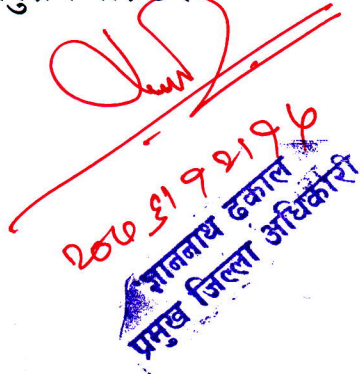 २०७३।१२।१५
ज्ञाननाथ ढकाल
प्रमुख जिल्ला अधिकारी